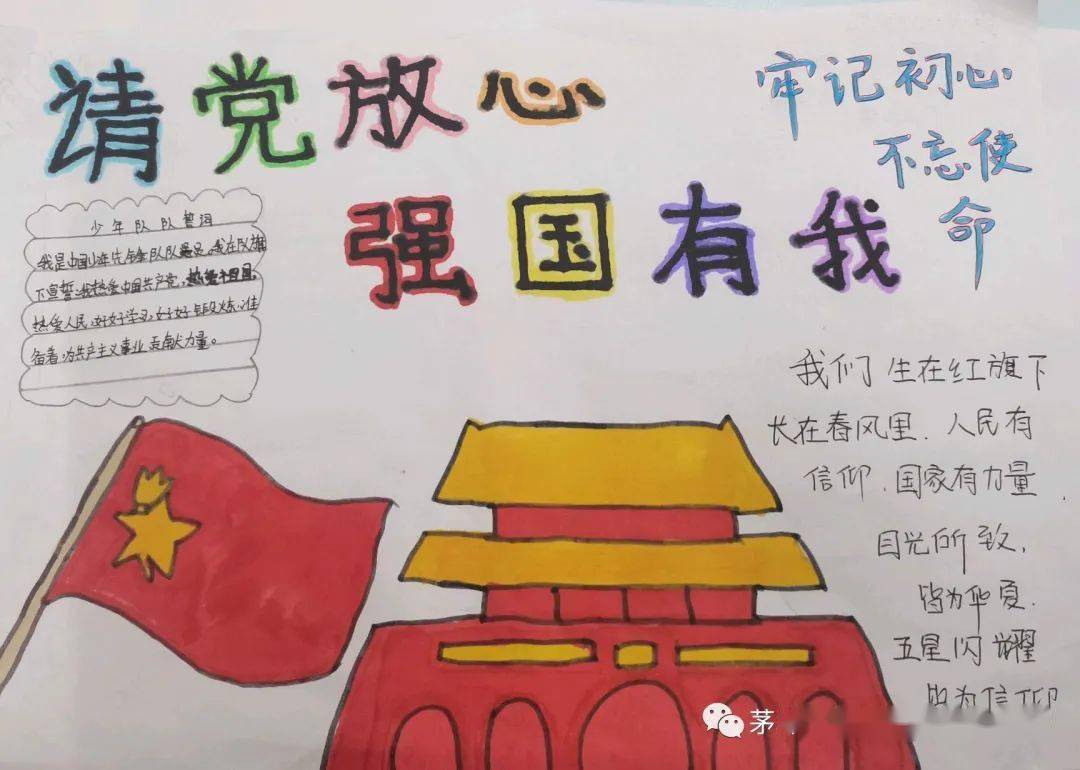 请党放心
强国有我
牢记初心
不忘使
命
少年队队誓词
我是中国少年先锋队队员。我在队旗
下宣誓:我热爱中国共产党,热爱祖国,
热爱人民,好好学习,好好锻炼,准
备着,为共产主义事业贡献力量。
我们生在红旗下
长在春风里.人民有
信仰.国家有力量
目光所致,
皆为华夏.
五星闪耀
皆为信仰
茅